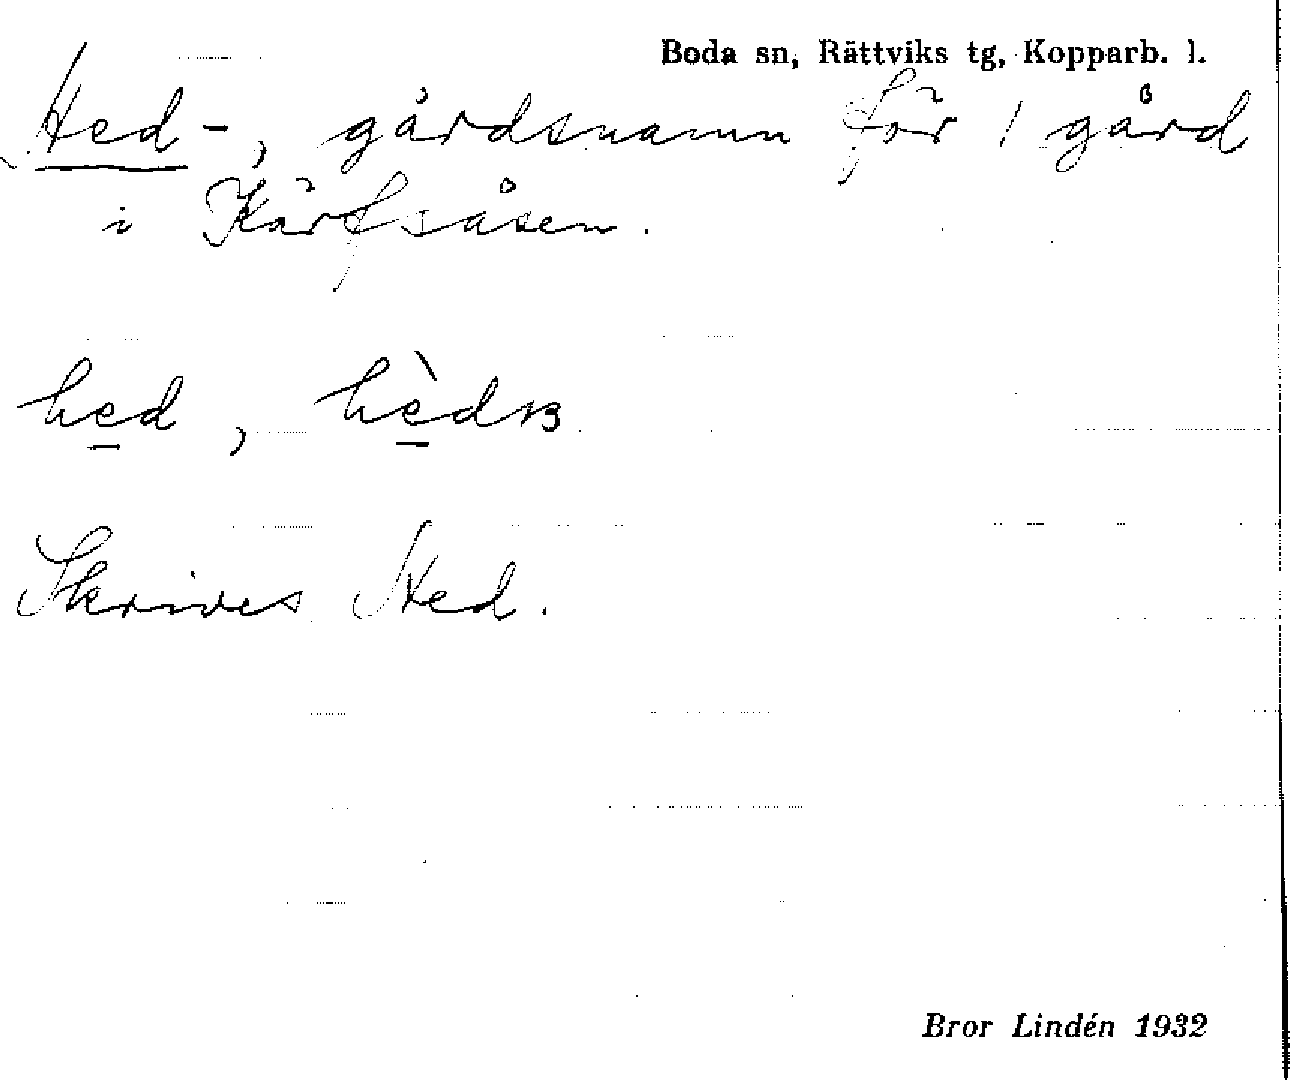 Boda sn, Rättviks tg, Kopparb. l.
Hed-, gårdsnamn för 1 gård
i Kärfsåsen.
hed,
Skrives Hed.
Bror Lindén 1932